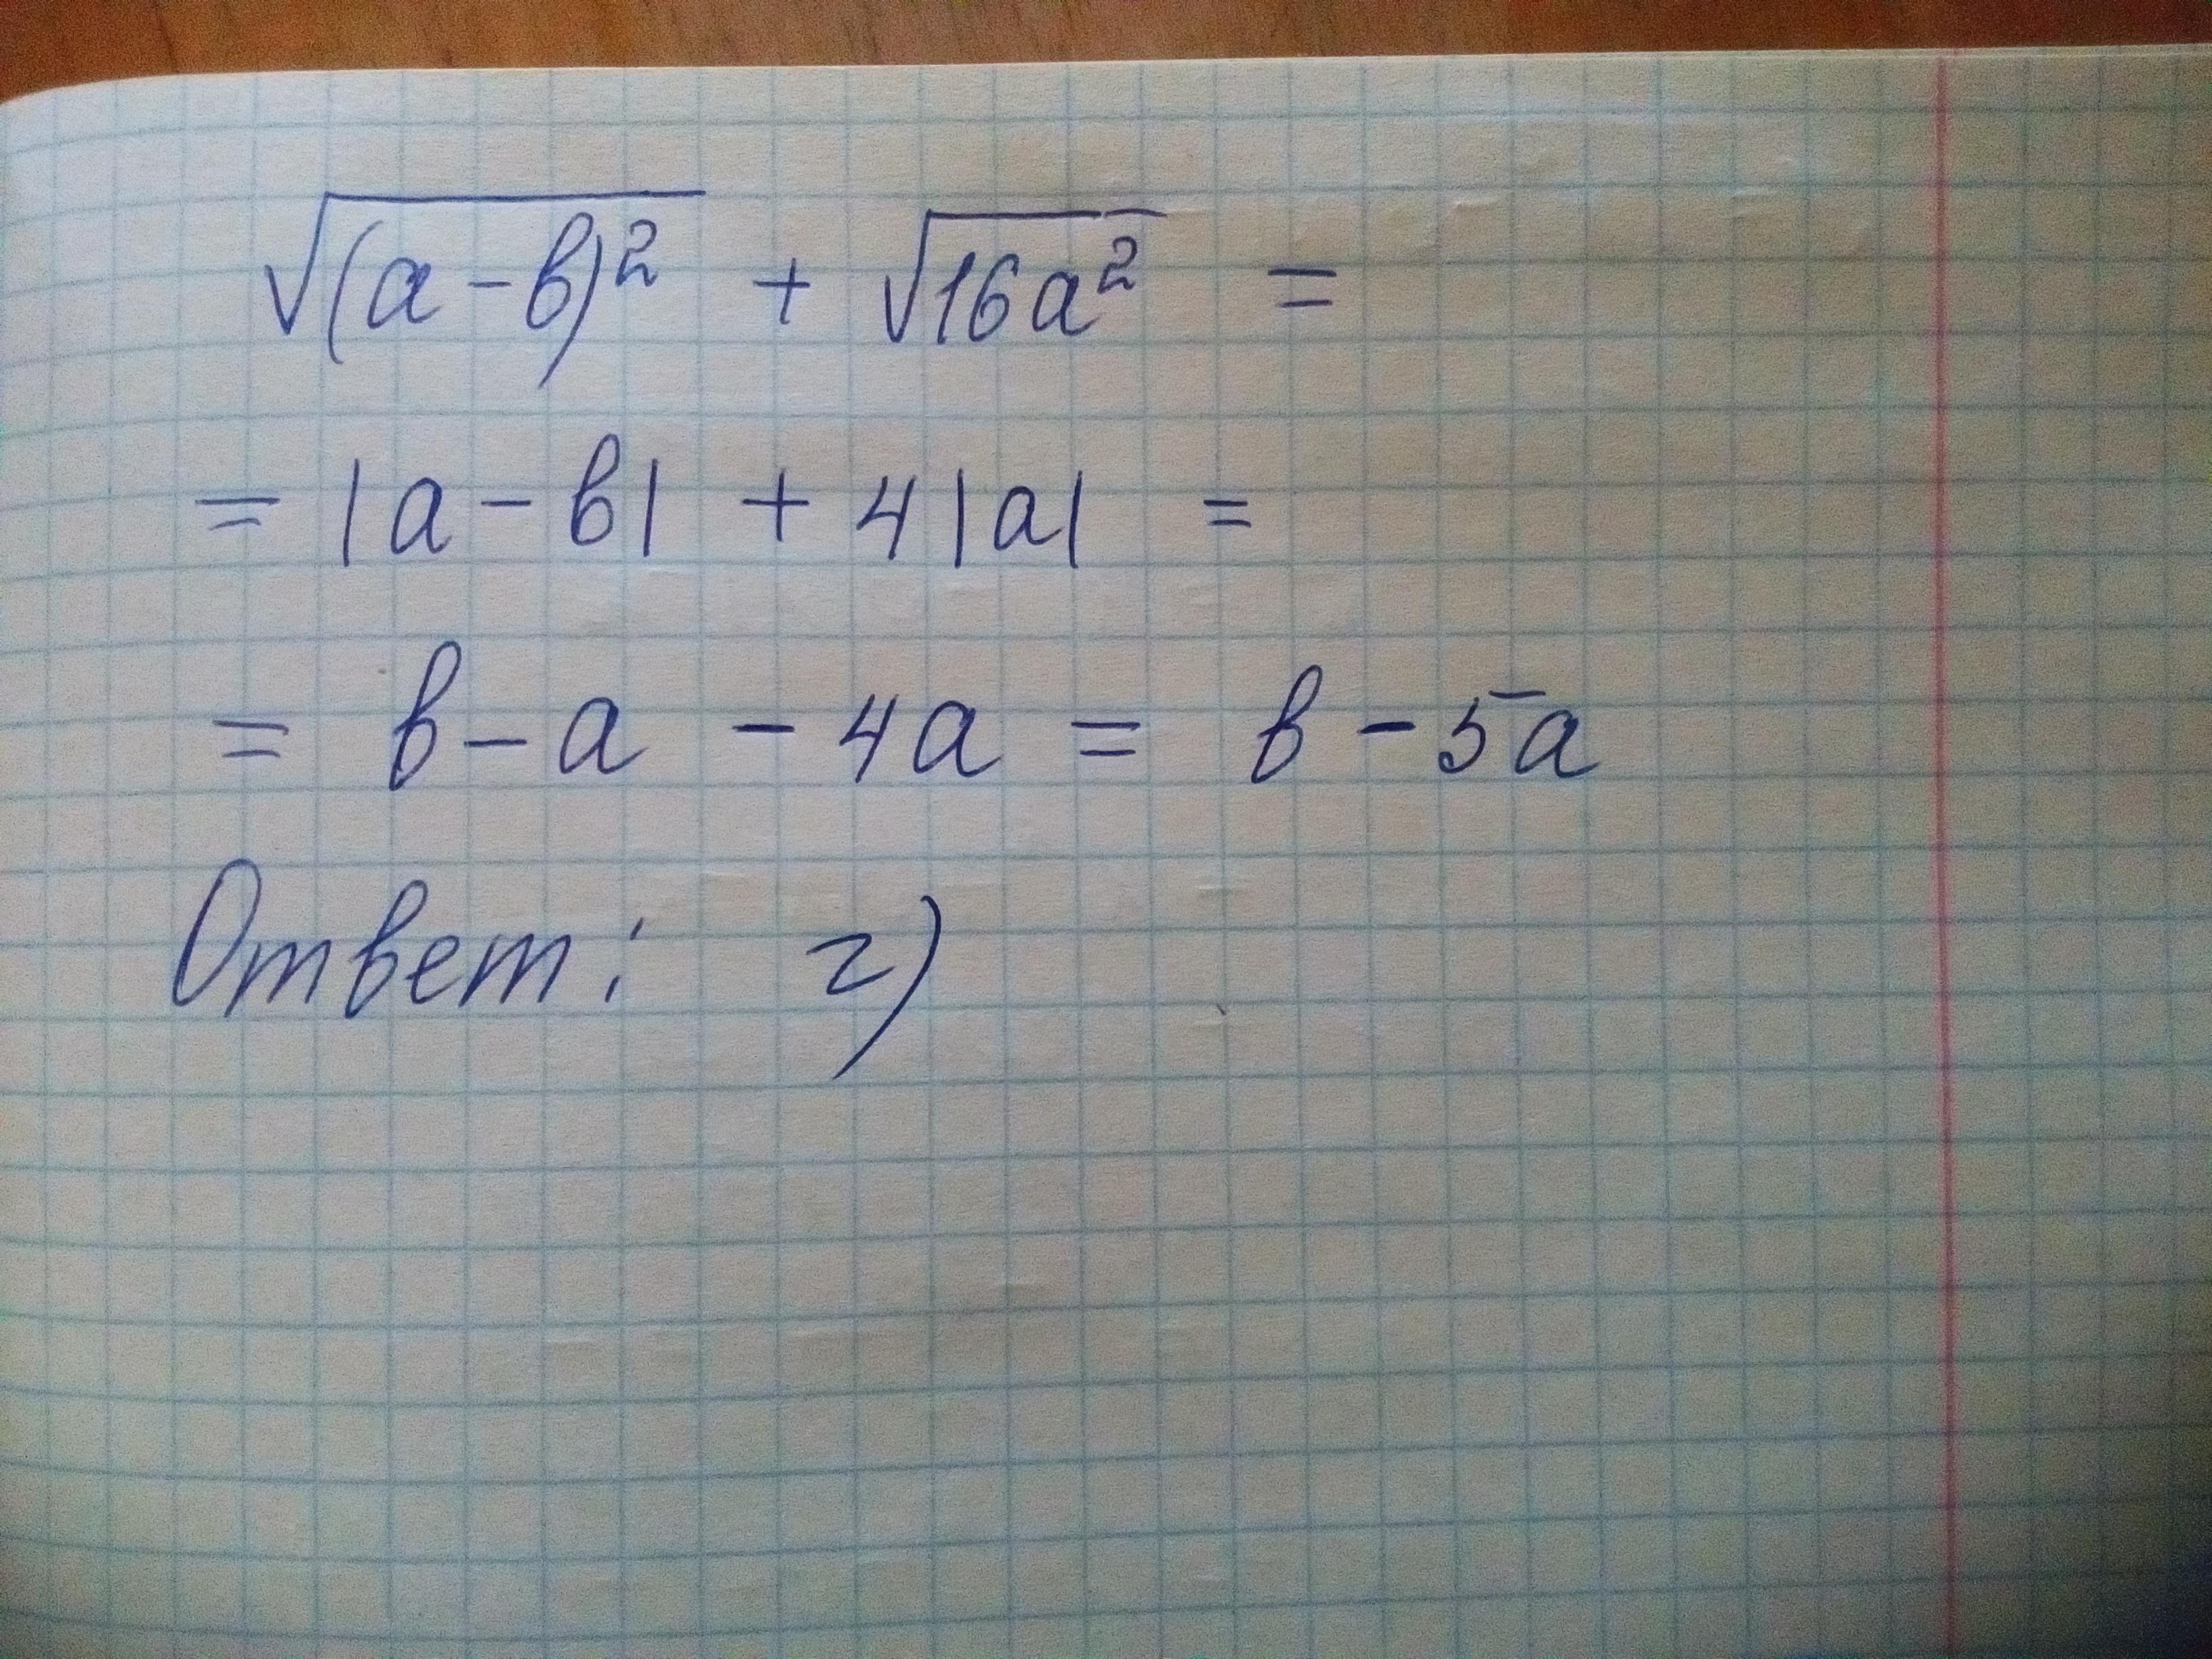 √(a-b)² + √16a² =
= |a-b| + 4|a| =
= b-a - 4a = b-5a
Ответ: г)